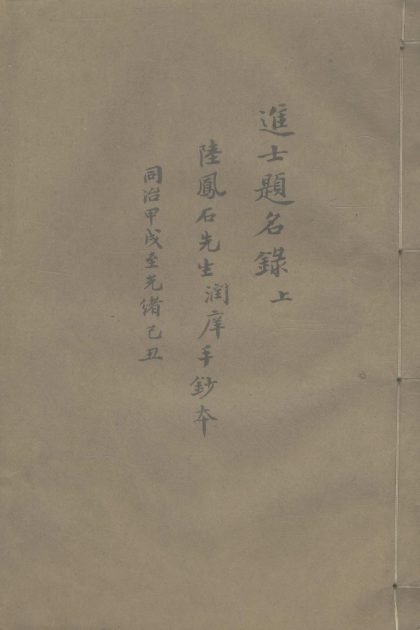 進士題名錄 上
陸鳳石先生潤庠手鈔本
同治甲戌至光緒己丑